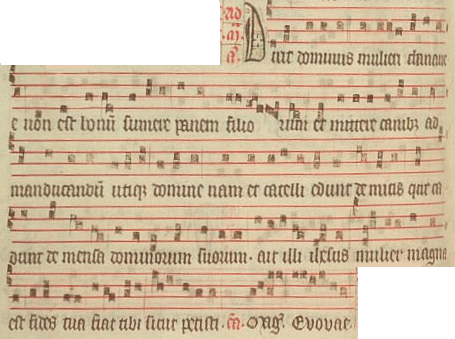 Dixit dominus mulieri chanane
e non est bonū sumere panem filio rum et mittere canibꝫ ad
manducandū utiqꝫ domine nam et catelli edunt de micis que ca
dunt de mensa dominorum suorum · ait illi ihesus mulier magna
est fides tua fiat tibi sicut petisti · Evovae